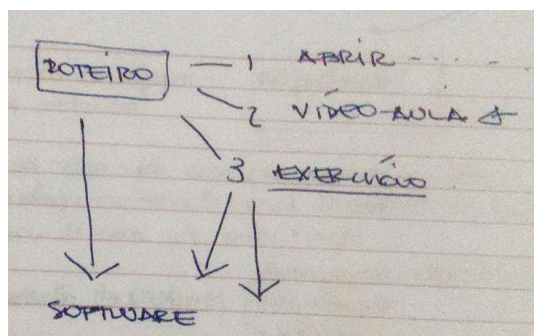 ROTEIRO
1 ABRIR - - - - -
2 VÍDEO-AULA
3 EXERCÍCIO
SOFTWARE